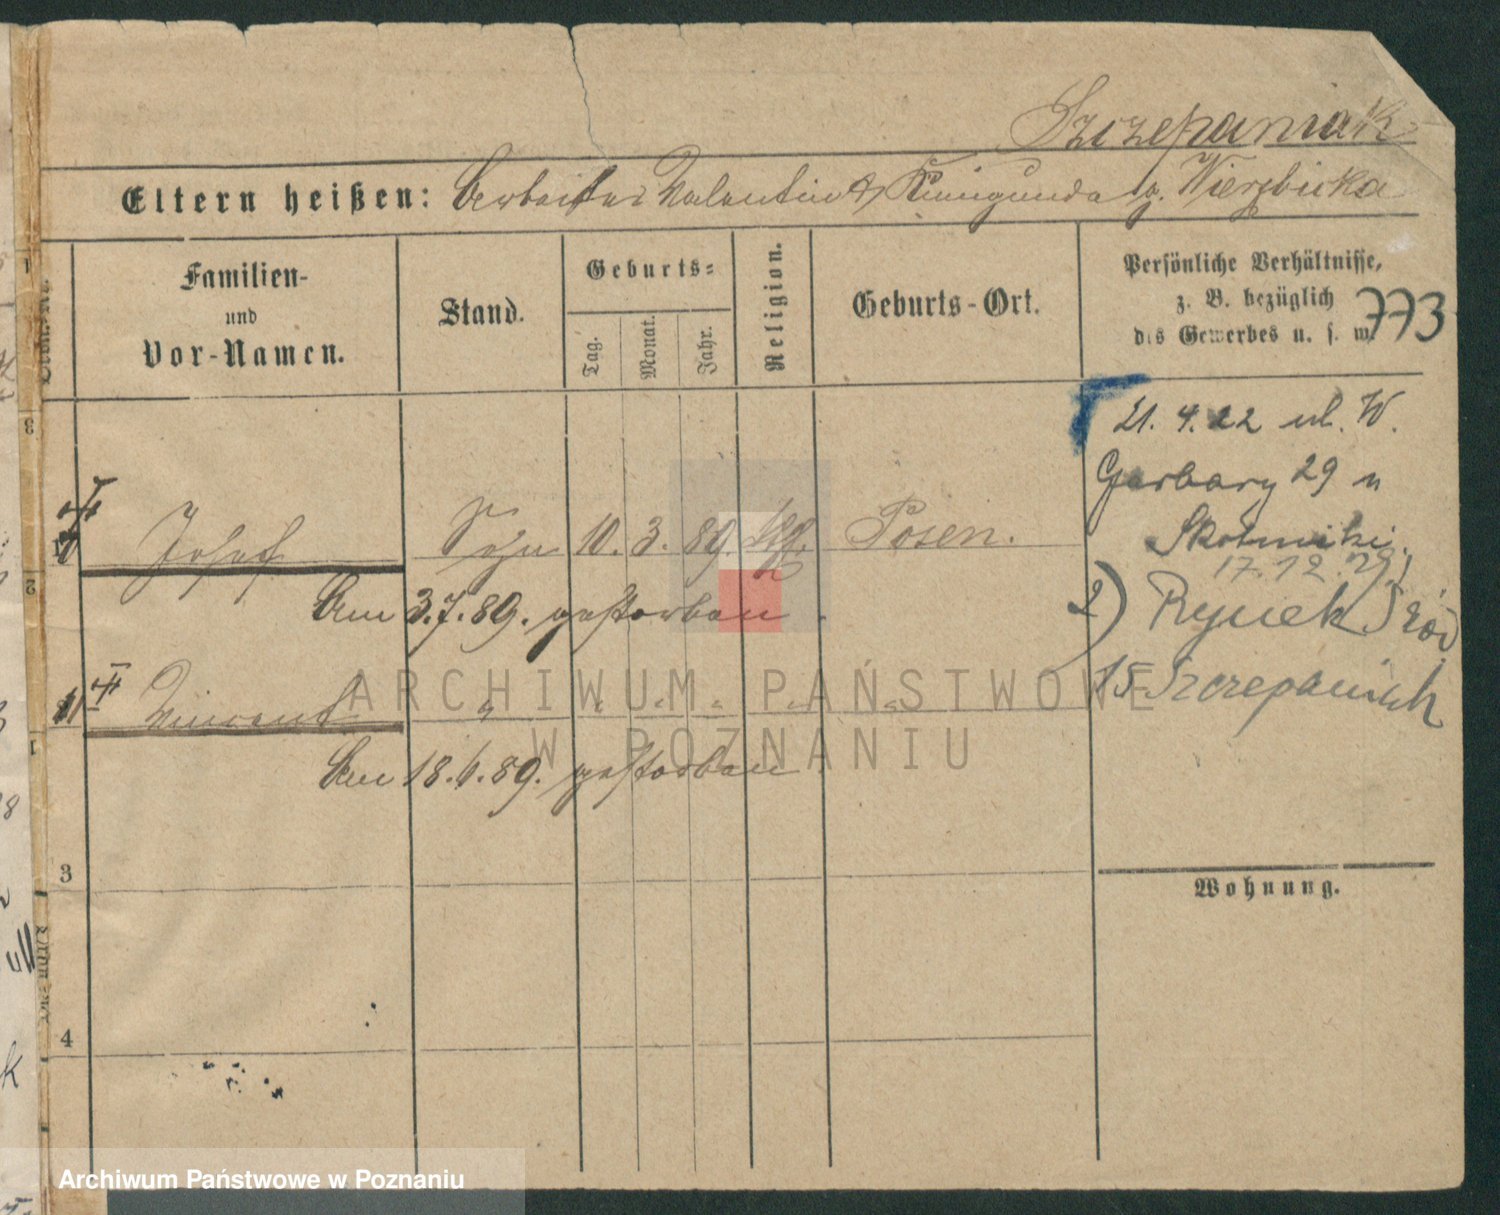 Szczepaniak
Eltern heißen: Arbeiter Valentin & Kunigunda g. Wierzbicka
Familien-
und
Vor-Namen.
Stand.
Geburts-
Tag.
Monat.
Jahr.
Religion.
Geburts-Ort.
Persönliche Verhältnisse,
z. B. bezüglich
des Gewerbes u. s. w.
773
21. 4. 22 ul. W.
Garbary 29 u
Skotnicki.
17. 12. 29
2) Rynek Śród
15 Szczepaniak
Josef Sohn 10. 3. 89. Posen.
Am 3.7.89. gestorben.
Vincent " " " " " "
Am 18.6.89. gestorben.
3
Wohnung.
4
ARCHIWUM PAŃSTWOWE
W POZNANIU
Archiwum Państwowe w Poznaniu